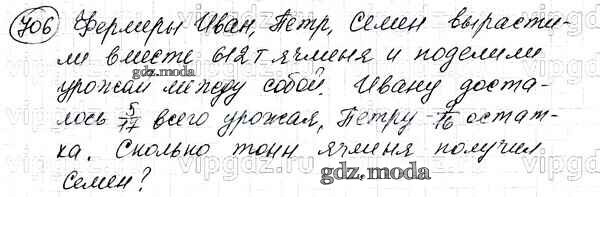 706 Фермеры Иван, Петр, Семен вырасти-
ли вместе 612т ячменя и поделили
урожай между собой. Ивану доста-
лось 5/17 всего урожая, Петру - /16 остат-
ка. Сколько тонн ячменя получил
Семен?
gdz.moda
gdz.moda
gdz.moda
vipgdz